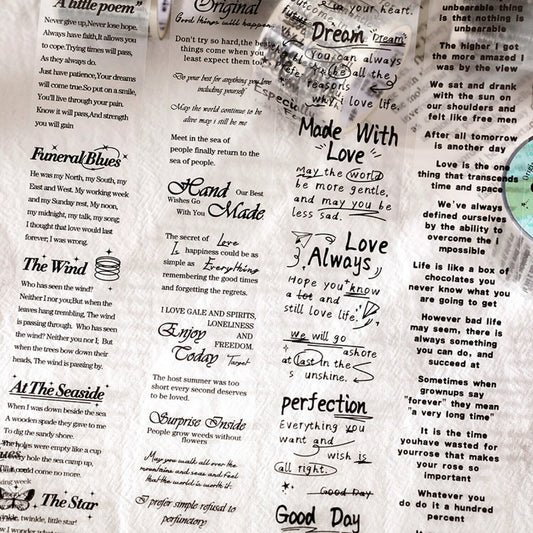 A little poem”
Never give up,Never lose hope.
Always have faith,It allows you
to cope.Trying times will pass,
As they always do.
Just have patience,Your dreams
will come true.So put on a smile,
You'll live through your pain.
Know it will pass,And strength
you will gain
Funeral Blues
He was my North, my South, my
East and West. My working week
and my Sunday rest, My noon,
my midnight, my talk, my song;
I thought that love would last
forever; I was wrong.
The Wind
Who has seen the wind?
Neither I nor you;But when the
leaves hang trembling, The wind
is passing through. Who has seen
the wind? Neither you nor I; But
when the trees bow down their
heads, The wind is passing by.
At The Seaside
When I was down beside the sea
A wooden spade they gave to me
To dig the sandy shore.
The holes were empty like a cup
every hole the sea camp up,
could come no more.
ing week
The Star
twinkle, twinkle, little star!
Original
Good things will happen
Don't try so hard,the best
things come when you
least expect them to.
Do your best for anything you love
including yourself
May the world continue to be
alive may i still be me
Meet in the sea of
people finally return to the
sea of people.
Hand Our Best
Wishes Go
With You Made
The secret of Love
Is happiness could be as
simple as Everything
remembering the good times
and forgetting the regrets.
I LOVE GALE AND SPIRITS,
LONELINESS
Enjoy AND
FREEDOM.
Today Target
The host summer was too
short every second deserves
to be loved.
Surprise Inside
People grow weeds without
flowers
May you walk all over the
mountains and seas and feel
that the world is worth it.
I prefer simple refusal to
perfunctory
in your heart.
Dream "Dream"
You can always
be all the
reasons
why i love life.
Especi
Made With
Love
May the world
be more gentle,
and may you be
less sad.
Love
Always
Hope you know
a lot and
still love life.
We will go
ashore
at last in the
sunshine.
perfection
Everything you
want and
wish is
all right.
Good Day
Good Day
unbearable thing
is that nothing is
unbearable
The higher I got
the more amazed I
was by the view
We sat and drank
with the sun on
our shoulders and
felt like free men
After all tomorrow
is another day
Love is the one
thing that transcends
time and space
We've always
defined ourselves
by the ability to
overcome the i
mpossible
Life is like a box of
chocolates you
never know what you
are going to get
However bad life
may seem, there is
always something
you can do, and
succeed at
Sometimes when
grownups say
"forever" they mean
"a very long time"
It is the time
youhave wasted for
yourrose that makes
your rose so
important
Whatever you
do do it a hundred
percent